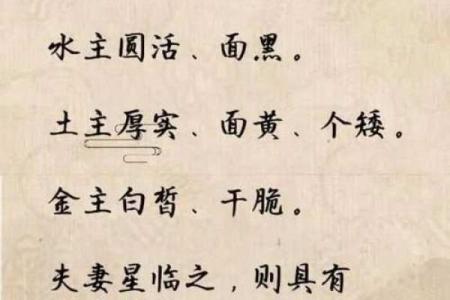 水主圆活、面黑。
土主厚实、面黄、个矮。
金主白皙、干脆。
夫妻星临之，则具有